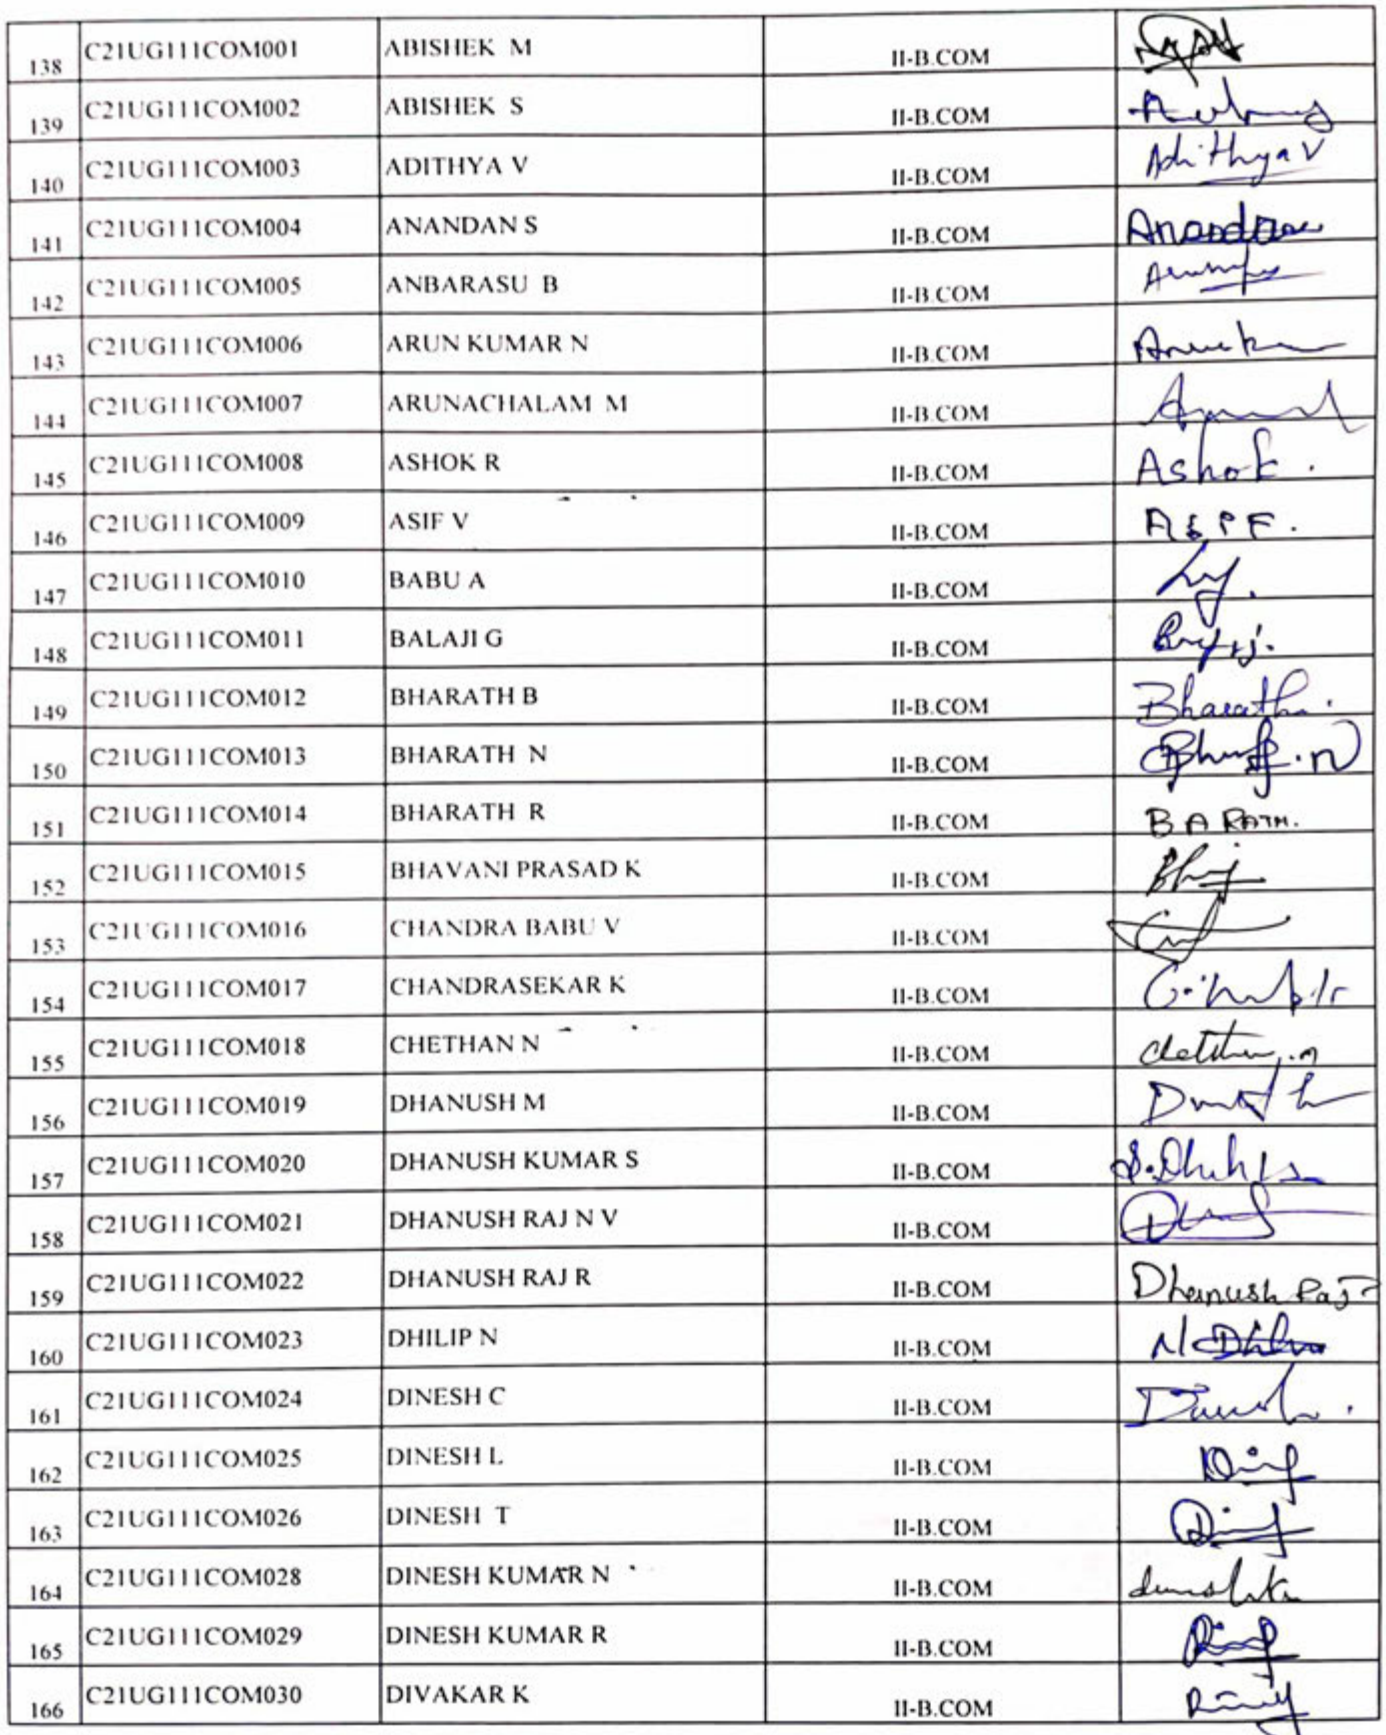 138 C21UG111COM001 ABISHEK M II-B.COM
139 C21UG111COM002 ABISHEK S II-B.COM
140 C21UG111COM003 ADITHYA V II-B.COM Adithya V
141 C21UG111COM004 ANANDAN S II-B.COM
142 C21UG111COM005 ANBARASU B II-B.COM
143 C21UG111COM006 ARUN KUMAR N II-B.COM
144 C21UG111COM007 ARUNACHALAM M II-B.COM
145 C21UG111COM008 ASHOK R II-B.COM Ashok.
146 C21UG111COM009 ASIF V II-B.COM
147 C21UG111COM010 BABU A II-B.COM
148 C21UG111COM011 BALAJI G II-B.COM
149 C21UG111COM012 BHARATH B II-B.COM
150 C21UG111COM013 BHARATH N II-B.COM
151 C21UG111COM014 BHARATH R II-B.COM BARATH.
152 C21UG111COM015 BHAVANI PRASAD K II-B.COM
153 C21UG111COM016 CHANDRA BABU V II-B.COM
154 C21UG111COM017 CHANDRASEKAR K II-B.COM
155 C21UG111COM018 CHETHAN N II-B.COM
156 C21UG111COM019 DHANUSH M II-B.COM
157 C21UG111COM020 DHANUSH KUMAR S II-B.COM
158 C21UG111COM021 DHANUSH RAJ N V II-B.COM
159 C21UG111COM022 DHANUSH RAJ R II-B.COM Dhanush Raj R
160 C21UG111COM023 DHILIP N II-B.COM
161 C21UG111COM024 DINESH C II-B.COM
162 C21UG111COM025 DINESH L II-B.COM
163 C21UG111COM026 DINESH T II-B.COM
164 C21UG111COM028 DINESH KUMAR N II-B.COM
165 C21UG111COM029 DINESH KUMAR R II-B.COM
166 C21UG111COM030 DIVAKAR K II-B.COM